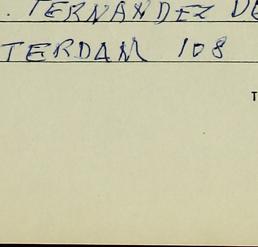 . FERNANDEZ DE
TERDAM 108
T